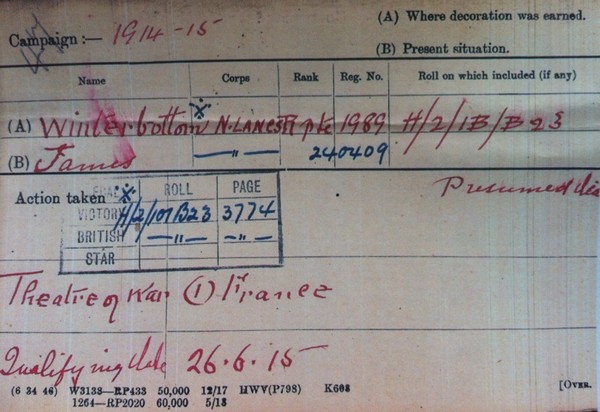 (A) Where decoration was earned.
Campaign :— 1914-15
(B) Present situation.
Name Corps Rank Reg. No. Roll on which included (if any)
(A) Winterbottom N. LANCS R Pte 1989 H/2/1B/B23
(B) James —"— 240409
Action taken Presumed
ROLL PAGE
VICTORY H/2/101B23 3774
BRITISH —"— —"—
STAR
Theatre of War (1) France
Qualifying date 26.6.15
(6 34 46) W3133—RP433 50,000 12/17 HWV(P798) K608 [OVER.
1264—RP2020 60,000 5/18